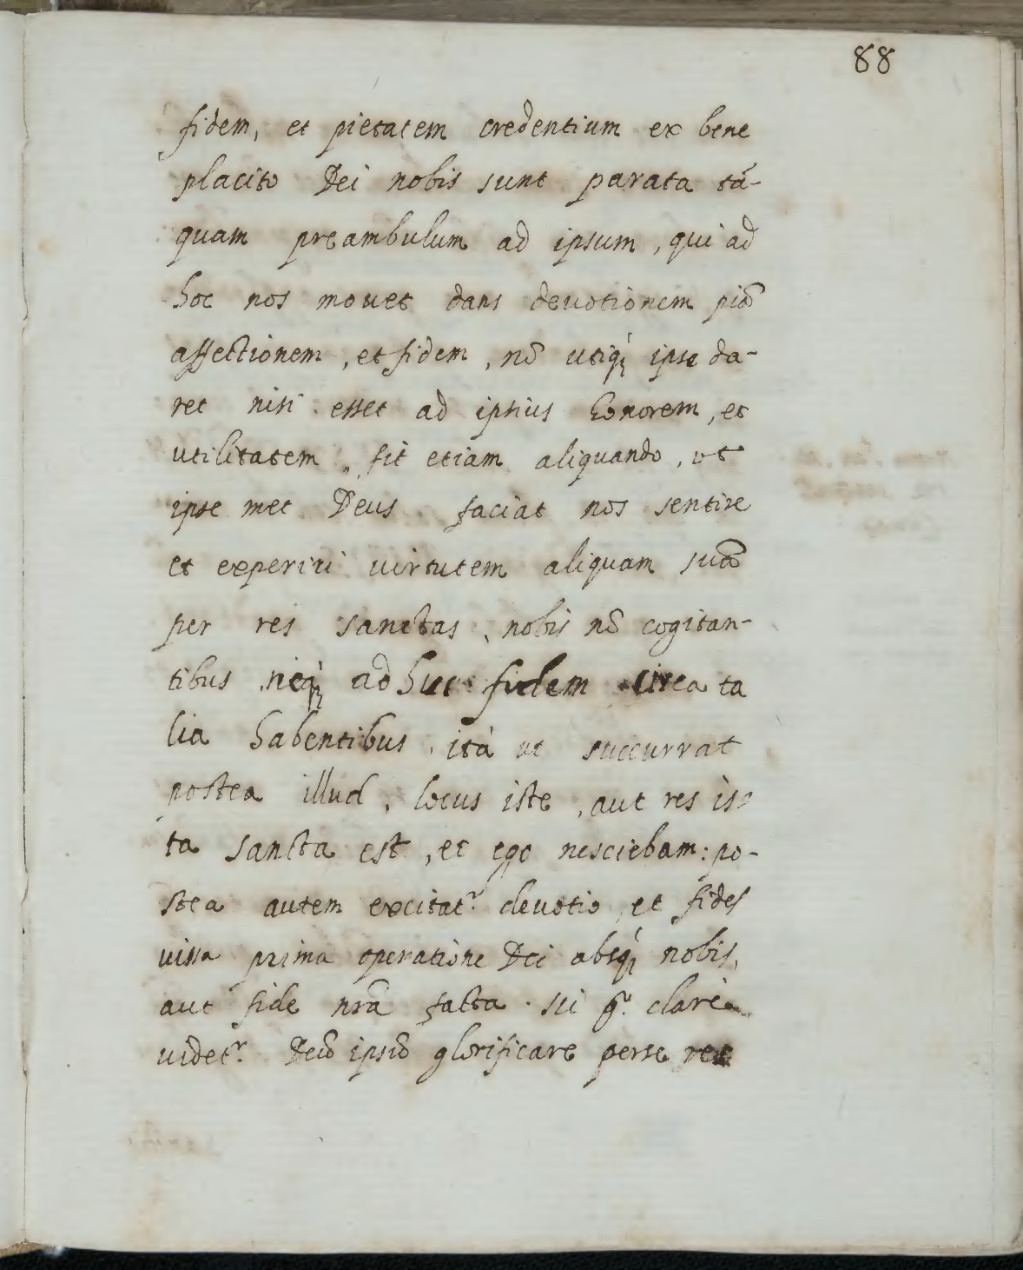 88
fidem, et pietatem credentium ex bene
placito Dei nobis sunt parata tá-
quam preambulum ad ipsum, qui ad
hoc nos movet dans devotionem piā
affectionem, et fidem, nō utiq́ʒ ipse da-
ret nisi esset ad ipsius honorem, et
utilitatem. fit etiam aliquando, ut
ipse met Deus faciat nos sentire
et experiri virtutem aliquam suā
per res sanctas, nobis nō cogitan-
tibus neq́ʒ adhuc fidem circa ta
lia habentibus. itá ut succurrat
postea illud, locus iste, aut res is-
ta sancta est, et ego nesciebam: po-
stea autem excitatʳ devotio, et fides
visa prima operatione Dei absq́ʒ nobis,
aut fide nrā facta. sic gʳ. clarè
videtʳ. Deū ipsū glorificare per se